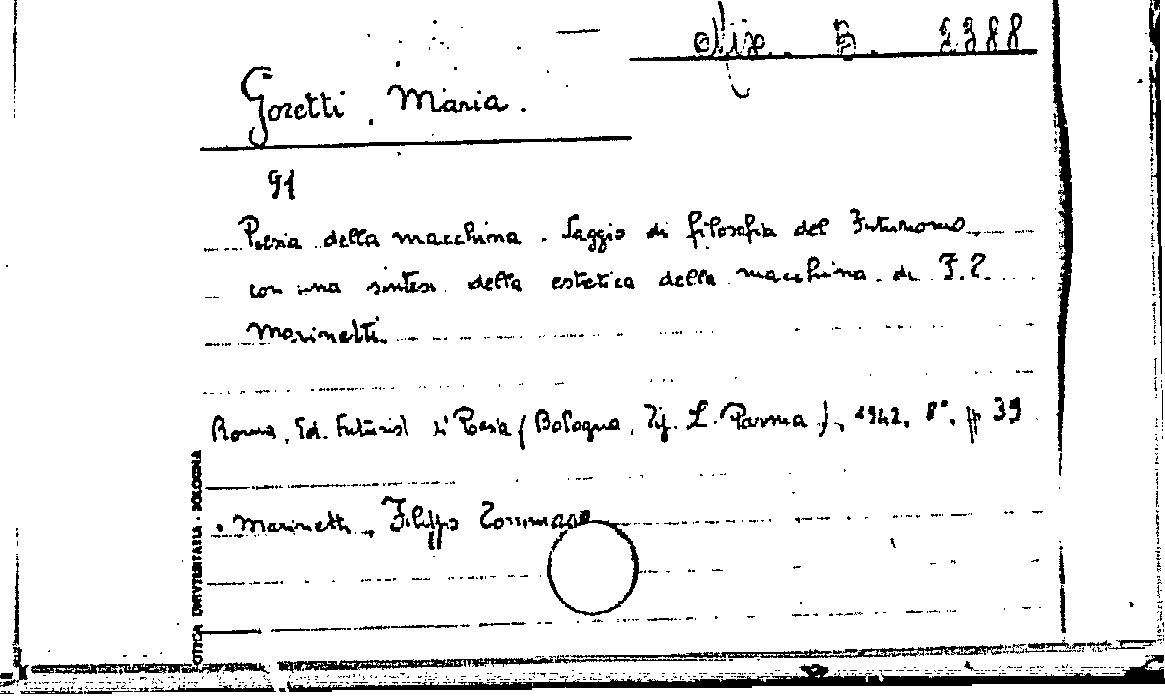 Mix. B. 2388
Goretti, Maria.
91
Poesia della macchina. Saggio di filosofia del Futurismo
con una sintesi della estetica della macchina di F.T.
Marinetti.
Roma, Ed. Futurist di Poesia (Bologna, Tip. L. Parma), 1942, 8°, pp 39
. Marinetti, Filippo Tommaso
DITTA UNIVERSITARIA - BOLOGNA